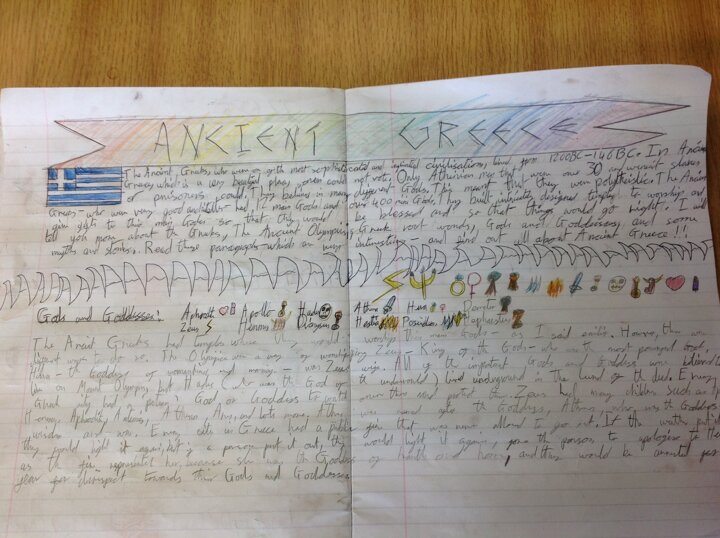 ANCIENT GREECE
The Ancient Greeks, who were one of the most sophisticated and civilisations, lived from 1200BC-146BC. In Ancient
Greece, which is a very beautiful place, women could not vote. Only Athenian men that were over 30 and weren't slaves
or prisoners could. They believed in many different Gods. This meant that they were polytheistic. The Ancient
Greeks - who were very good architects - had over 400 main Gods. They built intricately designed temples to worship and
give gifts to their many Gods so that they would be blessed and so that things would go right. I will
tell you more about the Greeks, The Ancient Olympics, Greek root words, Gods and Goddesses, and some
myths and stories. Read these paragraphs - which are very interesting - and find out all about Ancient Greece!!!
Gods and Goddesses: Aphrodite Apollo Hades Athena Hera Demeter
Zeus Hermes Dionysus Hestia Poseidon Hephaestus
The Ancient Greeks had temples where they would worship their many Gods - as I said earlier. However, there were
different ways to do so. The Olympics was a way of worshipping Zeus - King of the Gods - who was the most powerful God,
Hera - the Goddess of and marriage - was Zeus' wife. All of the important Gods and Goddesses were
live on Mount Olympus, but Hades (who was the God of the underworld) lived underground in the land of the dead. Every
Greek city had a God or Goddess to protect Zeus had many children such as
Hermes, Aphrodite, Athena, Ares, and lots more. was named after the Goddess, Athena, who was the Goddess
wisdom and war. Every in Greece had a public fire that was never allowed to go out. If the
they could light it again, but if a person put it out, they would light it again, the person to apologise to
as the fire represented her, because she was the Goddess of hearth and home, and they would be
for disrespect towards their Gods and Goddesses